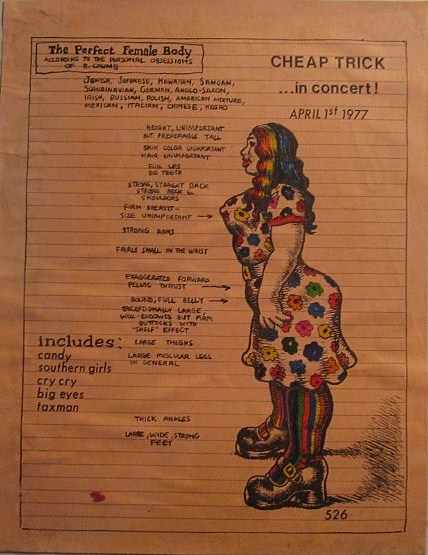 The Perfect Female Body
ACCORDING TO THE PERSONAL OBSESSIONS
OF R. CRUMB
JEWISH, JAPANESE, HAWAIIAN, SAMOAN,
SCANDINAVIAN, GERMAN, ANGLO-SAXON,
IRISH, RUSSIAN, POLISH, AMERICAN MIXTURE,
MEXICAN, ITALIAN, CHINESE, NEGRO
CHEAP TRICK
...in concert!
APRIL 1st 1977
HEIGHT, UNIMPORTANT
BUT PREFERABLE TALL
SKIN COLOR UNIMPORTANT
HAIR UNIMPORTANT
FULL LIPS
BIG TEETH
STRONG, STRAIGHT BACK
STRONG NECK &
SHOULDERS
FIRM BREASTS-
SIZE UNIMPORTANT
STRONG ARMS
FAIRLY SMALL IN THE WAIST
EXAGGERATED FORWARD
PELVIC THRUST
ROUND, FULL BELLY
EXCEPTIONALLY LARGE,
WELL-ENDOWED BUT FIRM
BUTTOCKS WITH
"SHELF" EFFECT
LARGE THIGHS
LARGE MUSCULAR LEGS
IN GENERAL
THICK ANKLES
LARGE, WIDE, STRONG
FEET
includes:
candy
southern girls
cry cry
big eyes
taxman
526